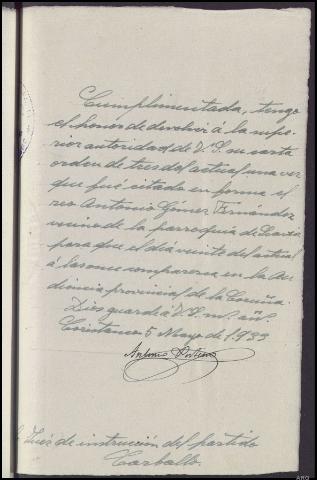 Cumplimentada, tengo
el honor de devolver á la supe-
rior autoridad de V.S. su carta
orden de tres del actual una vez
que fué citado en forma el
reo Antonio Gómez Fernández
vecino de la parroquia de
para que el día veinte del actual
á las once comparezca en la Au-
diencia provincial de la Coruña.
Dios guarde á V.S. m. añ.
Coristanco 5 Mayo de 1.933
Antonio
Juez de instrucción del partido
Carballo.